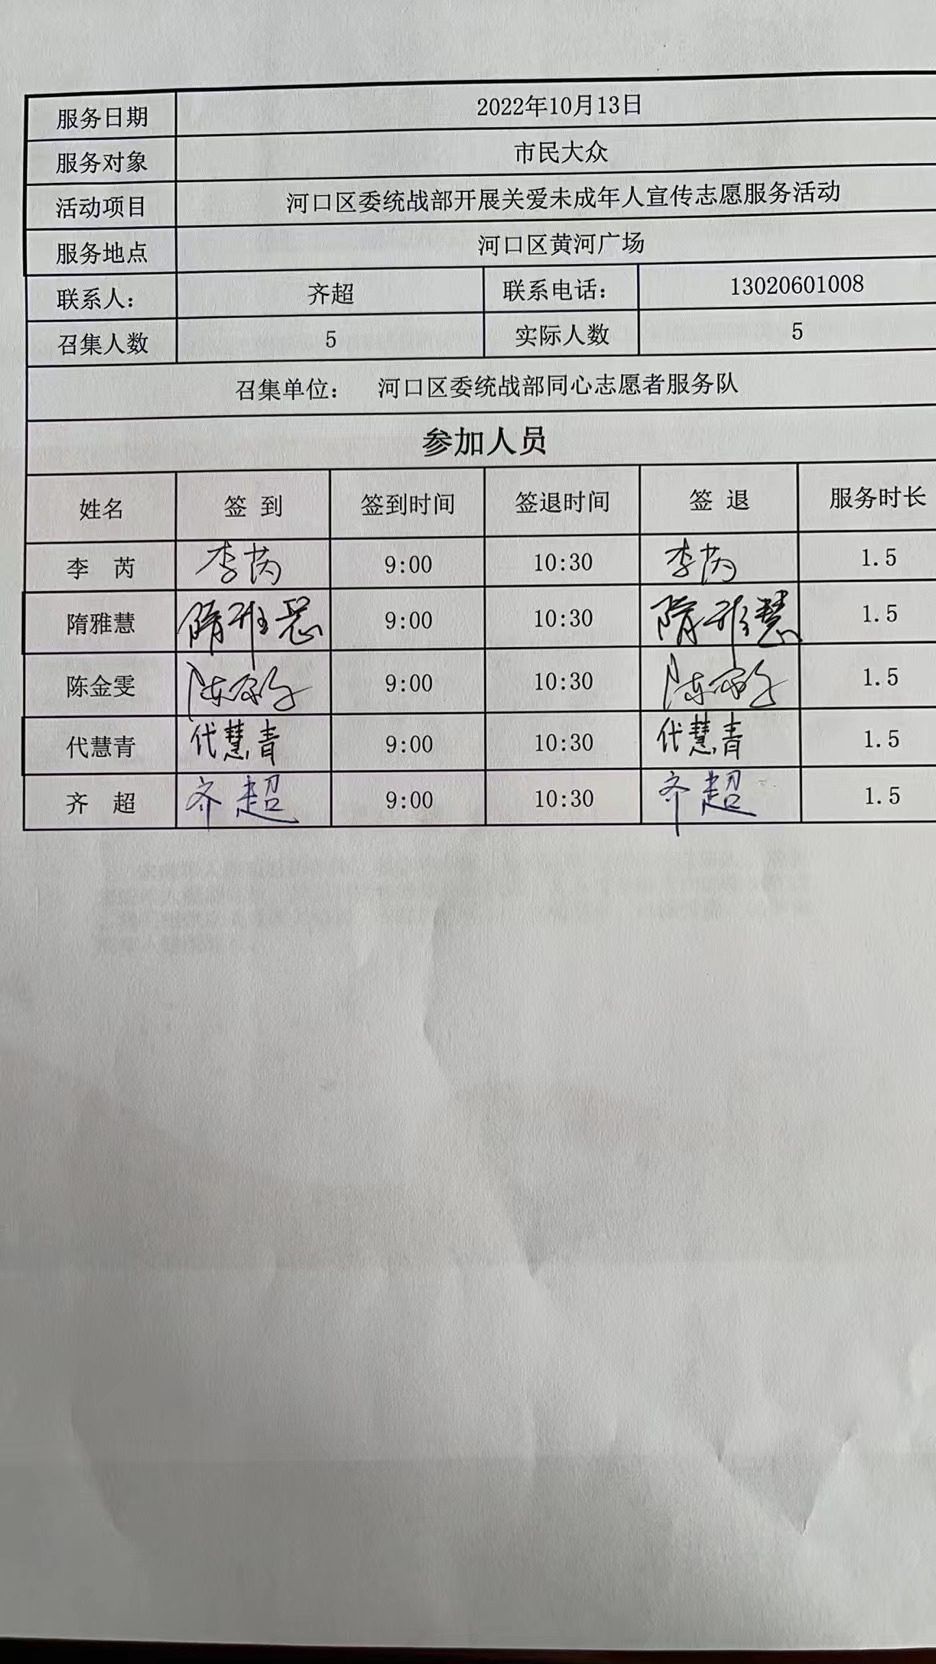 服务日期 2022年10月13日
服务对象 市民大众
活动项目 河口区委统战部开展关爱未成年人宣传志愿服务活动
服务地点 河口区黄河广场
联系人： 齐超 联系电话： 13020601008
召集人数 5 实际人数 5
召集单位： 河口区委统战部同心志愿者服务队
参加人员
姓名 签 到 签到时间 签退时间 签 退 服务时长
李 芮 李芮 9:00 10:30 李芮 1.5
隋雅慧 隋雅慧 9:00 10:30 隋雅慧 1.5
陈金雯 9:00 10:30 1.5
代慧青 代慧青 9:00 10:30 代慧青 1.5
齐 超 齐超 9:00 10:30 齐超 1.5